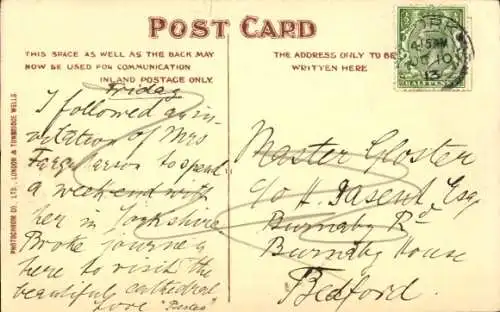 POST CARD
THIS SPACE AS WELL AS THE BACK MAY
NOW BE USED FOR COMMUNICATION
INLAND POSTAGE ONLY.
THE ADDRESS ONLY TO BE
WRITTEN HERE
PHOTOCHROM CO. LTD., LONDON & TUNBRIDGE WELLS
Friday
I followed an in-
vitation of Mrs
to spend
a weekend with
her in Yorkshire
Broke journey
here to visit the
beautiful cathedral
Love
Master Gloster
c/o H. Dasent, Esq
Burnaby Rd
Burnaby House
Bedford.
4.15AM
10
13
HALFPENNY